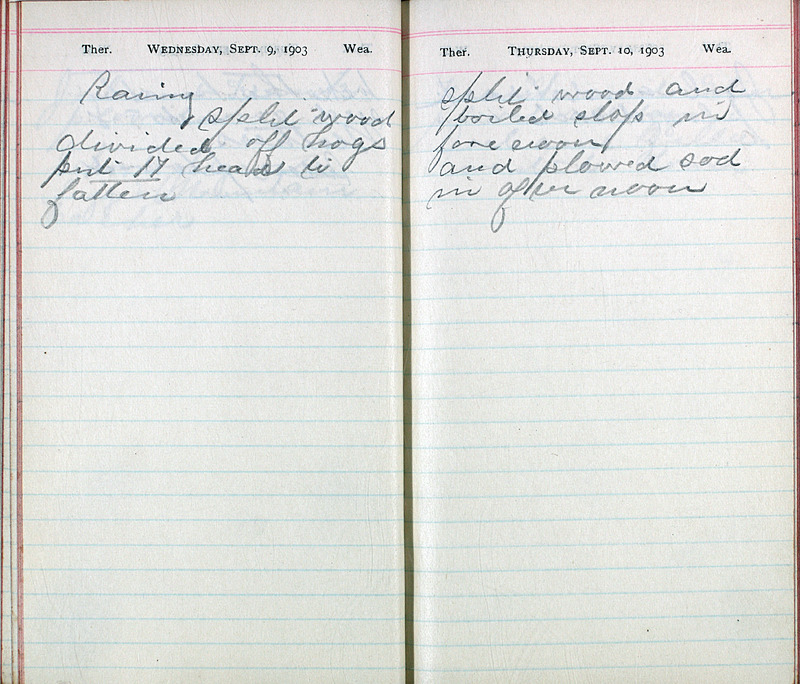 Ther. WEDNESDAY, SEPT. 9, 1903 Wea.
Raring
split wood
divided off hogs
put 17 heads to
fatten
Ther. THURSDAY, SEPT. 10, 1903 Wea.
split wood and
boiled slop in
fore noon
and plowed sod
in after noon